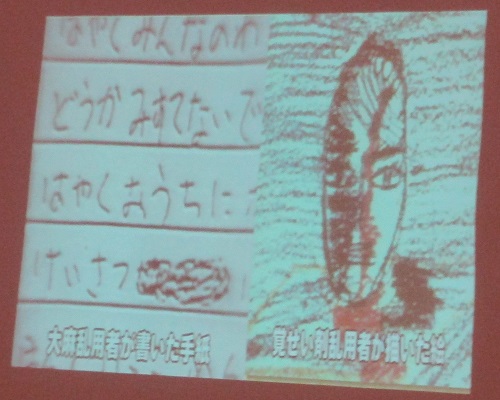 はやくみんなのわ
どうかみすてないで
はやくおうちに
けいさつ
大麻乱用者が書いた手紙
覚せい剤乱用者が描いた絵